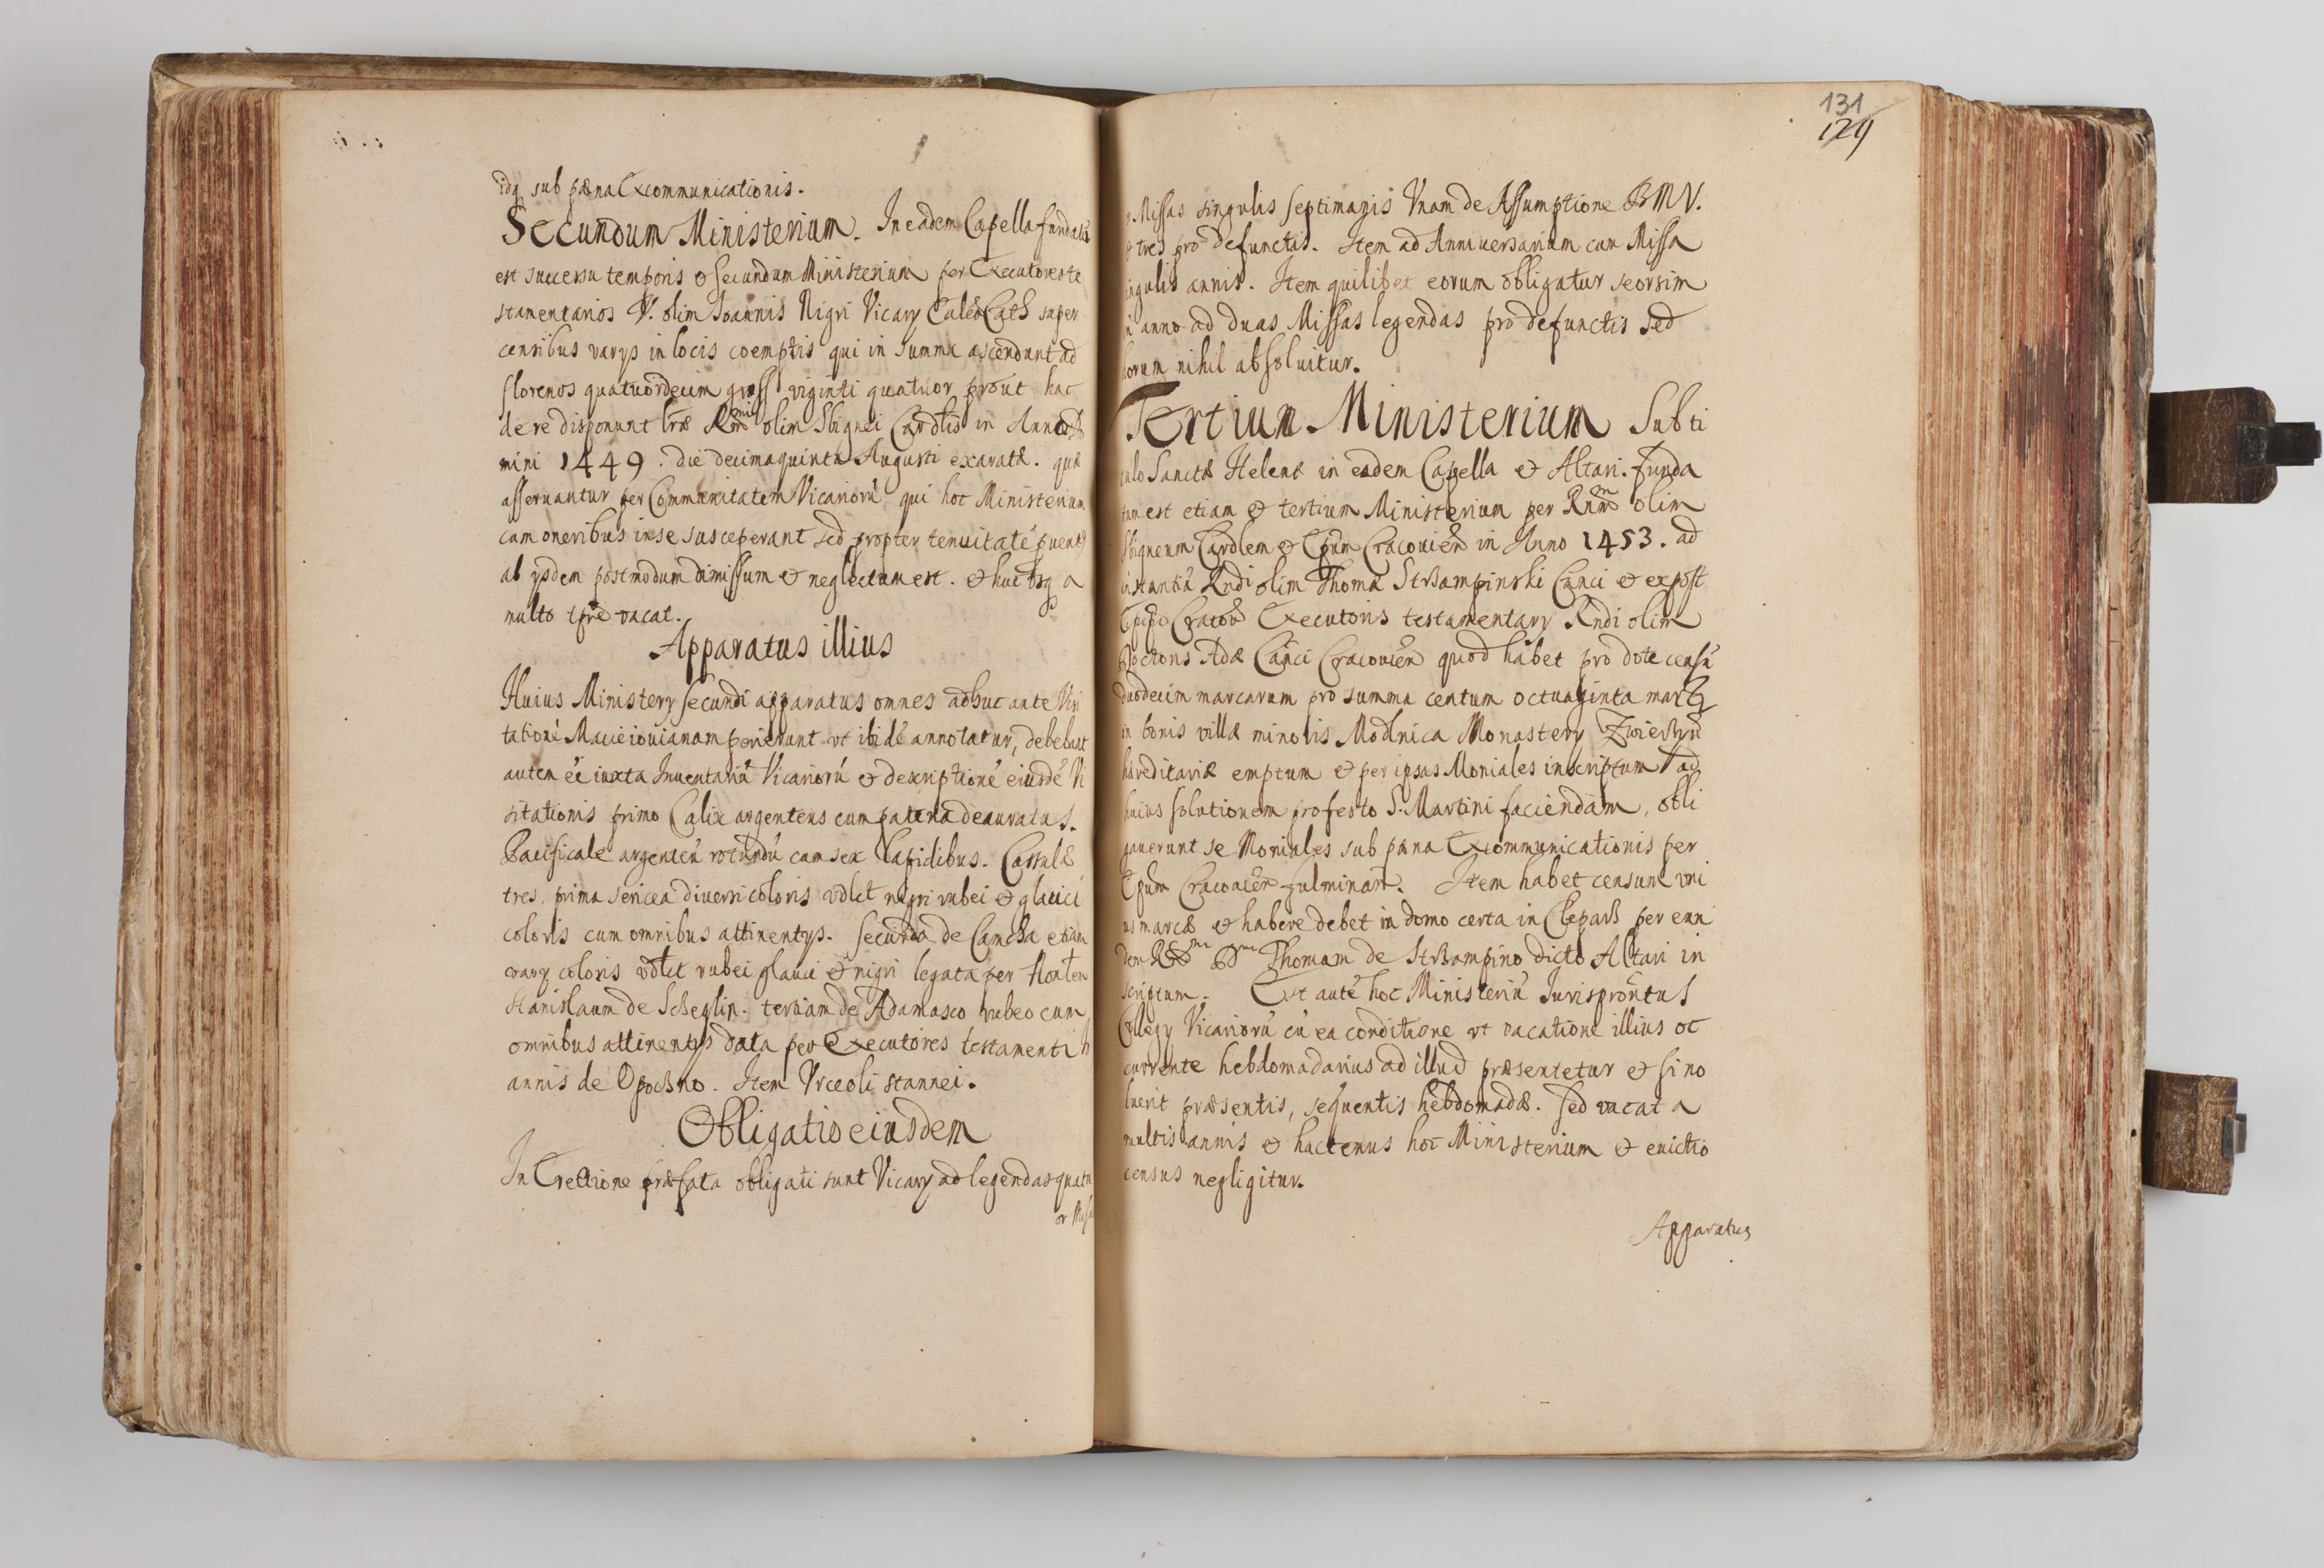 idq sub pæna Excommunicationis.
Secundum Ministerium. In eadem Capella fundatū
est successu temporis & secundum Ministerium per Executores te
stamentarios V. olim Ioannis Nigri Vicary Cath super
censibus varys in locis coemptis qui in summa ascendunt ad
florenos quatuordecim gross viginti quatuor prout hac
de re disponunt lræ Rmi olim Sbignei Cardlis in Anno Do
mini 1449. die decimaquinta Augusti exaratæ. quæ
asseruantur per Communitatem Vicariorū qui hoc Ministerium
cum oneribus in se susceperant sed propter tenuitatē
ab ysdem postmodum dimissum & neglectum est. & huc usq a
multo tpre vacat.
Apparatus illius
Huius Ministery secundi apparatus omnes adhuc ante Visi
tationē Macieiouianam perierunt vt ibidē annotatur, debebant
autem eē iuxta Inuentariū Vicariorū & descriptionē eiusdē Vi
sitationis primo Calix argenteus cum patena deauratus.
Pacificale argenteū rotundū cum sex lapidibus. Cassulæ
tres, prima sericea diuersi coloris vdlct nigri rubei & glauci
coloris cum omnibus attinentys. secunda de Camcha etiam
vary coloris vdlct rubei glauci & nigri legata per Honlem
Stanislaum de Scheglin. tertiam de Adamasco rubeo cum
omnibus attinentys data per Executores testamenti Io
annis de Opoczno. Item Vrceoli stannei.
Obligatio eiusdem
In Erectione præfata obligati sunt Vicary ad legendas quatu
or Missas
131
129
Missas singulis septimanis Vnam de Assumptione BMV.
& tres pro defunctis. Item ad Anniuersarium cum Missa
singulis annis. Item quilibet eorum obligatur seorsim
in anno ad duas Missas legendas pro defunctis sed
horum nihil absoluitur.
Tertium Ministerium Sub ti
tulo Sanctæ Helenæ in eadem Capella & Altari. funda
tum est etiam & tertium Ministerium per Rnm olim
Sbigneum Cardlem & Epum Cracouien in Anno 1453. ad
instantiā Rndi olim Thomæ Strzampinski Canci & expost
Epi Cracou Executoris testamentary Rndi olim
Doctoris Adæ Canci Cracouien quod habet pro dote censū
duodecim marcarum pro summa centum octuaginta marcis
in bonis villæ minoris Modlnica Monastery Zwierzyn
hæreditariæ emptum & per ipsas Moniales inscriptum ad
huius solutionem pro festo S. Martini faciendam, obli
gauerunt se Moniales sub pæna Excommunicationis per
Epum Cracouien fulminan. Item habet censum vni
us marcæ & habere debet in domo certa in Cleparz per eun
dem Thomam de Strzampino dicto Altari in
scriptum. Est autē hoc Ministeriū Iurisprontus
Collegy Vicariorū cū ea conditione vt vacatione illius oc
currente hebdomadarius ad illud præsentetur & si no
luerit præsentis, sequentis hebdomadæ. sed vacat a
multis annis & hactenus hoc Ministerium & euictio
census negligitur.
Apparatus